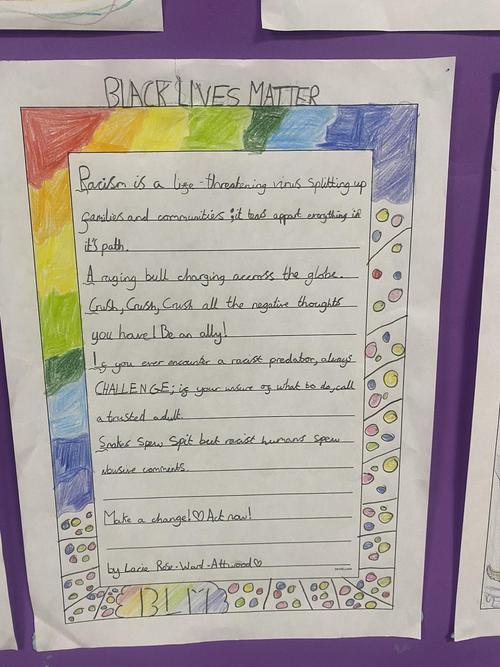 BLACK LIVES MATTER
Racism is a life-threatening virus splitting up
families and communities; it tends appart everything in
it's path.
A raging bull charging accross the globe.
Crush, Crush, Crush all the negative thoughts
you have! Be an ally!
If you ever encounter a racist predator, always
CHALLENGE; if your unsure of what to do, call
a trusted adult.
Snakes Spew Spit but racist humans spew
abusive comments.
Make a change!♡ Act now!
by Lacie Rose-Ward-Attwood♡
BLM